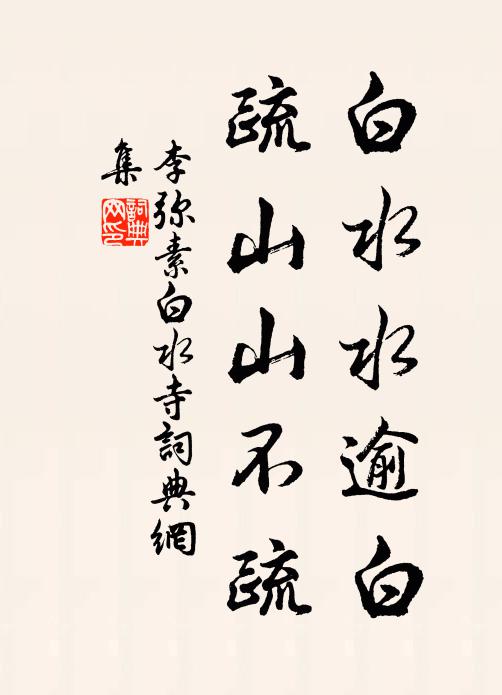 白水水逾白
疏山山不疏
李弥素白水寺詞典網
集
詞典網印